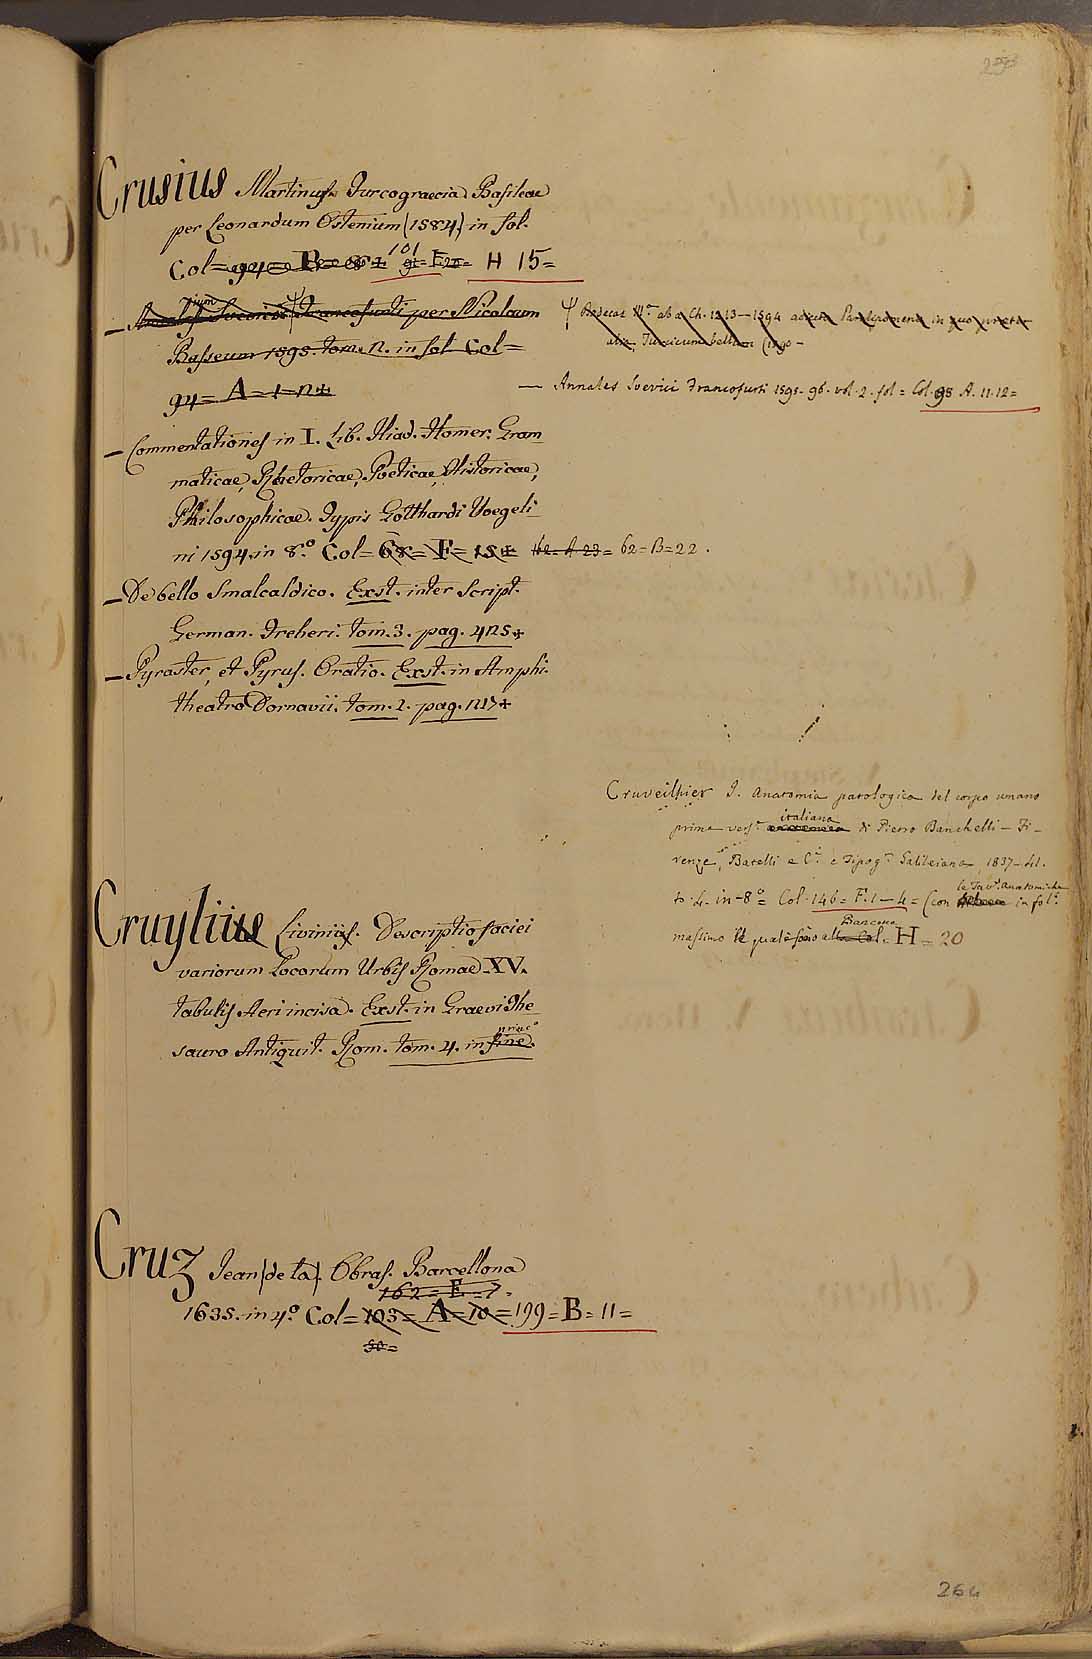 Crusius Martinus. Turcograecia. Basileae
per Leonardum Ostenium (1584.) in fol.
Col= 94= B= 101 = E = H 15=
Francofurti per Nicolaum
Basseum 1595. tom. 2. in fol. Col=
94= A= 1-2+
Ψ Ch. 1213-1594 Paralipomena in quo
Turcicum bellum
— Annales Svevici Francofurti 1595-96. vol. 2. fol= Col. 98 A. 11.12=
— Commentationes in I. Lib. Iliad. Homer. Gram
maticae, Rhetoricae, Poeticae, Historicae,
Philosophicae. Typis Gotthardi Voegeli
ni 1594. in 8.° Col= 68= F= 15+ 162= A 23= 62=B=22.
— De bello Smalcaldico. Exst. inter Script.
German. Freheri. tom. 3. pag. 425+
— Pyraster, et Pyrus. Oratio. Exst. in Amphi-
theatro Dornavii. tom. 1. pag. 217+
Cruveilhier J. Anatomia patologica del corpo umano
prima vers.e italiana di Pietro Banchelli — Fi-
renze, Batelli e C.i e Tipog.a Galileiana 1837-41.
to. 4. in-8°= Col. 146= F. 1-4= (con le Tav.e Anatomiche in fol.°
massimo alla Col. Bancona H=20
Cruylius Livinius. Descriptio faciei
variorum Locorum Urbis Romae XV.
tabulis Aeri incisa. Exst. in Graevi The
sauro Antiquit. Rom. tom. 4. in fine. princ.°
Cruz Jean (de la). Obras. Barcellona
162= E=7.
1635. in 4.° Col= 103= A=10= 199= B= 11=
50=
264